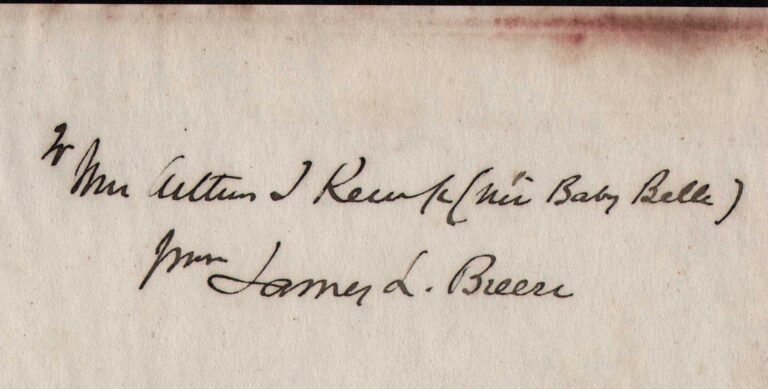 To
Mrs Arthur J Kemp (née Baby Belle)
from James L. Breese